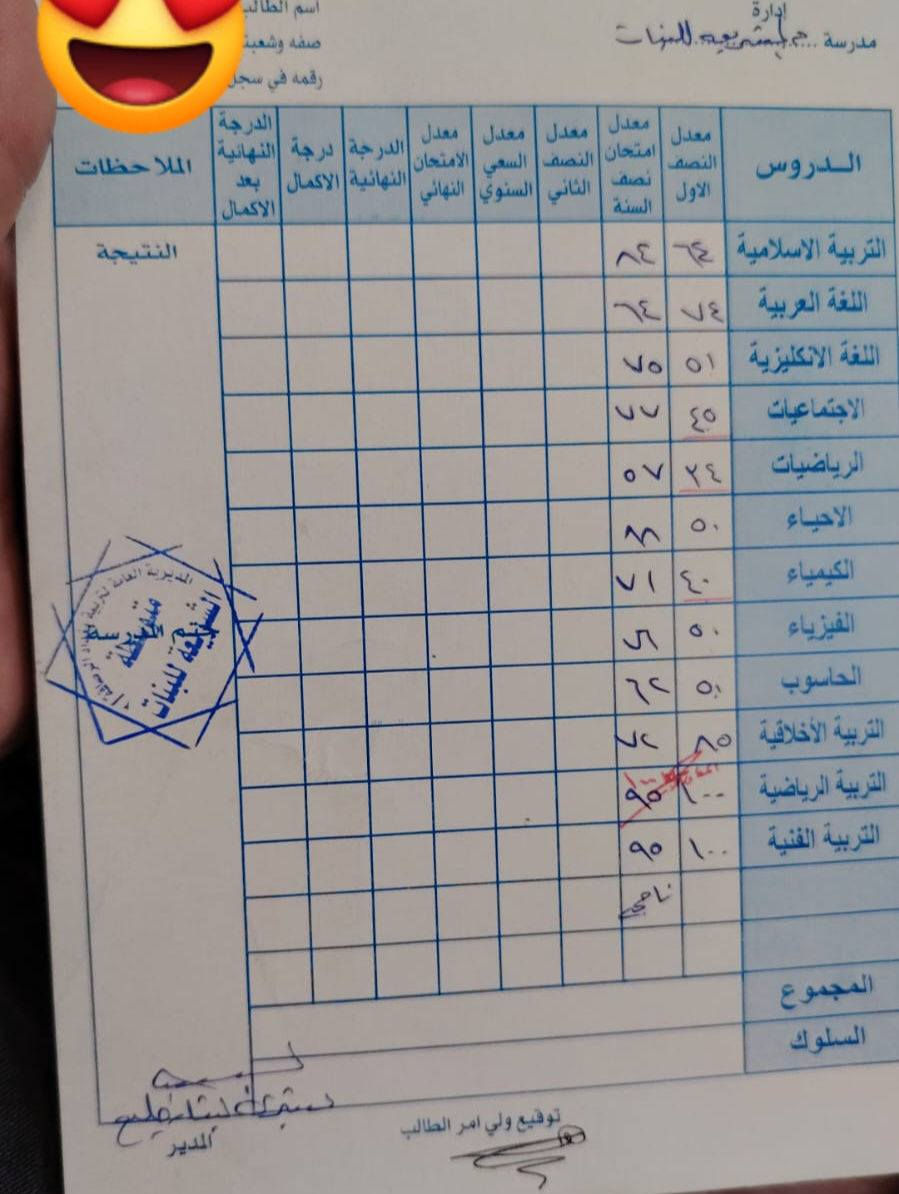 إدارة
مدرسة
للبنات
اسم الطالب
صفه وشعبته
رقمه في سجل
الـدروس
معدل النصف الاول
معدل امتحان نصف السنة
معدل النصف الثاني
معدل السعي السنوي
معدل الامتحان النهائي
الدرجة النهائية
درجة الاكمال
الدرجة النهائية بعد الاكمال
الملاحظات
التربية الاسلامية ٦٤ ٨٤ النتيجة
اللغة العربية ٧٤ ٦٤
اللغة الانكليزية ٥١ ٧٥
الاجتماعيات ٤٥ ٧٧
الرياضيات ٢٤ ٥٧
الاحياء ٥٠
الكيمياء ٤٠ ٧١
الفيزياء ٥٠
الحاسوب ٥٠ ٦٢
التربية الأخلاقية ٨٥ ٧٢
التربية الرياضية ١٠٠ ٩٥
التربية الفنية ١٠٠ ٩٥
ناجحة
المجموع
السلوك
المديرية العامة لتربية بغداد الرصافة
متوسطة
للبنات
توقيع ولي امر الطالب
المدير